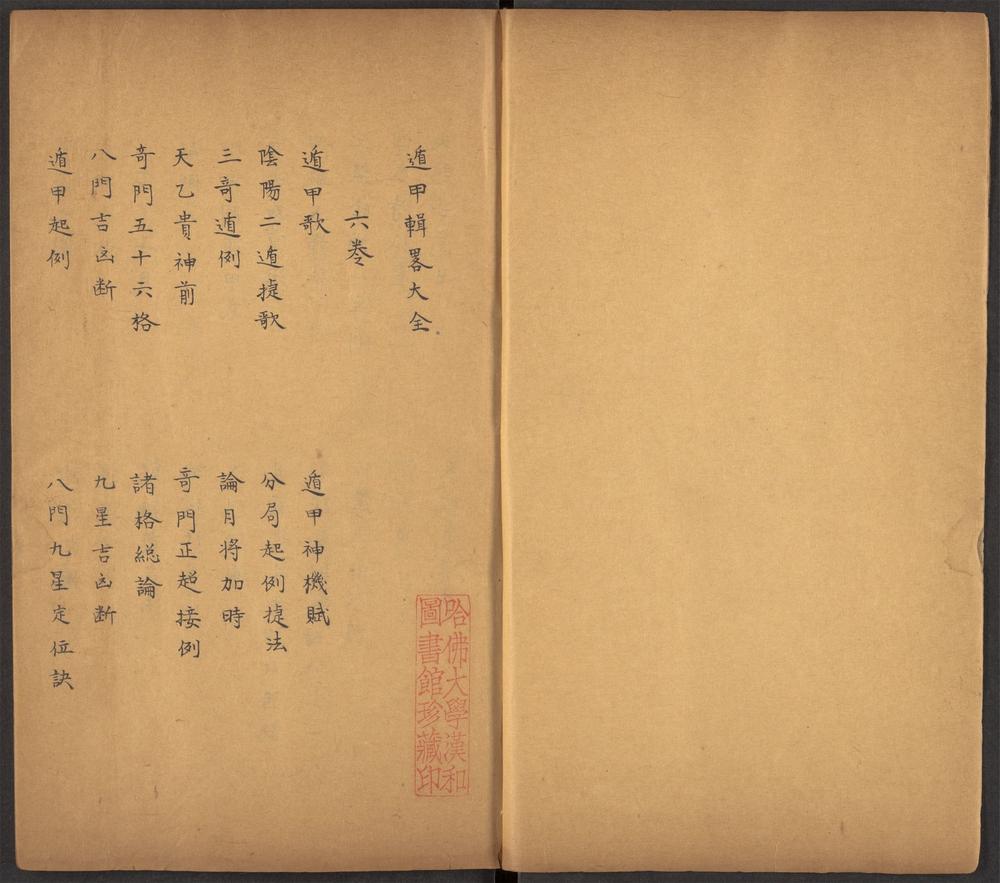 遁甲輯畧大全
六巻
遁甲歌
遁甲神機賦
陰陽二遁㨗歌
分局起例㨗法
三奇遁例
論月将加時
天乙貴神前
奇門正超接例
奇門五十六格
諸格総論
八門吉凶断
九星吉凶断
遁甲起例
八門九星定位訣
哈佛大學漢和
圖書館珍藏印